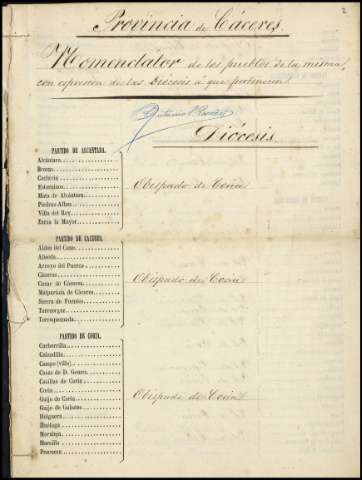 2
Provincia de Cáceres.
Nomenclátor de los pueblos de la misma,
con espresion de las Diócesis á que pertenecen.
Diócesis.
PARTIDO DE ALCÁNTARA.
Alcántara
Brozas
Ceclavin
Estorninos
Mata de Alcántara
Piedras-Albas
Villa del Rey
Zarza la Mayor
Obispado de Coria
PARTIDO DE CÁCERES.
Aldea del Cano
Aliseda
Arroyo del Puerco
Cáceres
Casar de Cáceres
Malpartida de Cáceres
Sierra de Fuentes
Torreorgaz
Torrequemada
Obispado de Coria
PARTIDO DE CORIA.
Cachorrilla
Calzadilla
Campo (villa)
Casas de D. Gomez
Casillas de Coria
Coria
Guijo de Coria
Guijo de Galisteo
Holguera
Huélaga
Moraleja
Morcillo
Pescueza
Obispado de Coria